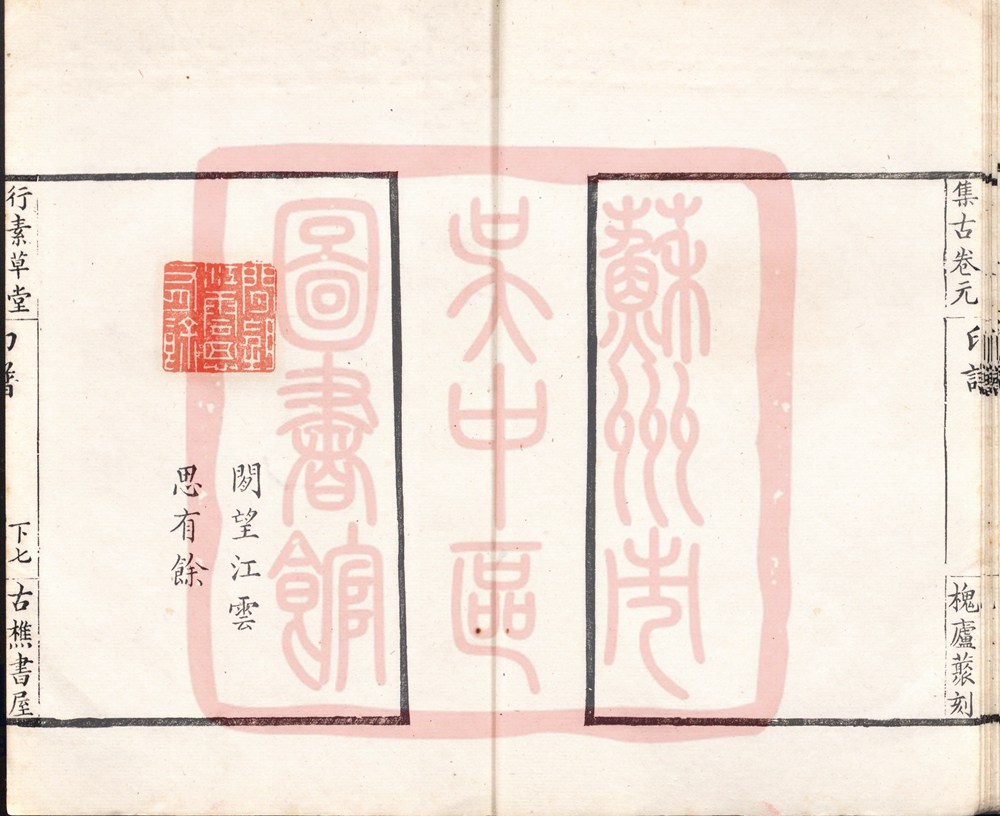 集古卷元
印譜
槐廬蒙刻
蘇州市
吳中區
圖書館
閒望江雲
思有餘
閒望江雲思有餘
行素草堂
印譜
下七
古樵書屋